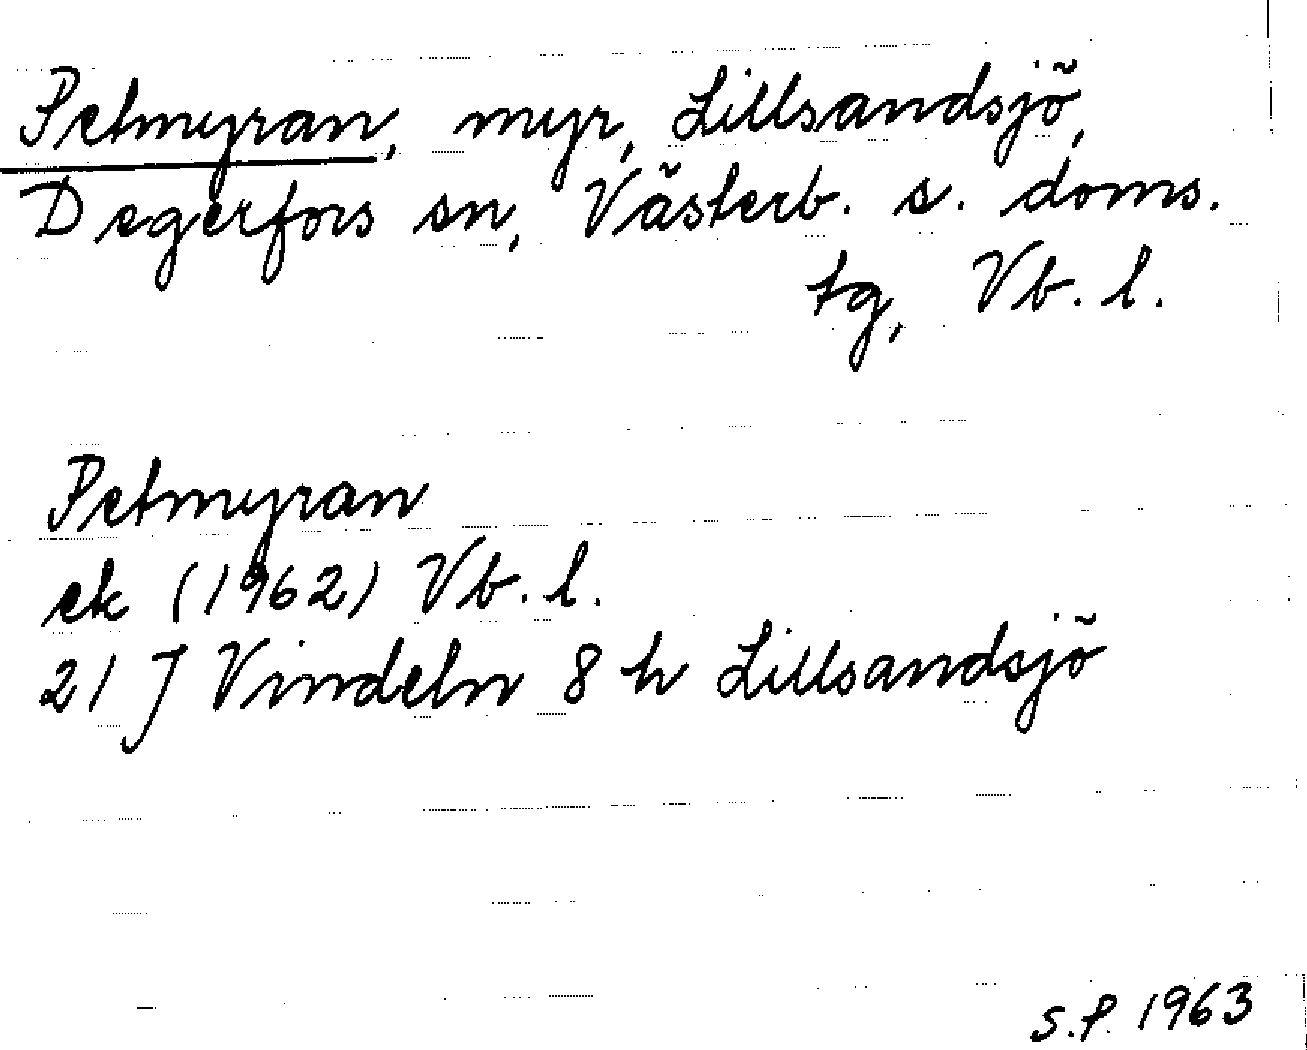 Petmyran, myr, Lillsandsjö,
Degerfors sn, Västerb. s. doms.
tg, Vb. l.
Petmyran
ek (1962) Vb. l.
21 J Vindeln 8 h Lillsandsjö
S.P. 1963